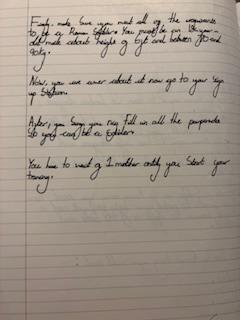 Firstly, make sure you meet all of the requirements
to be a Roman Soldier. You must be an 18 year
old male about height of 6ft and between 70 and
90kg.
Now, you are aware about it now go to your sign
up Station.
After, you Sign you may fill in all the
So you can be a Soldier.
You have to wait of 1 mother until you Start your
training.